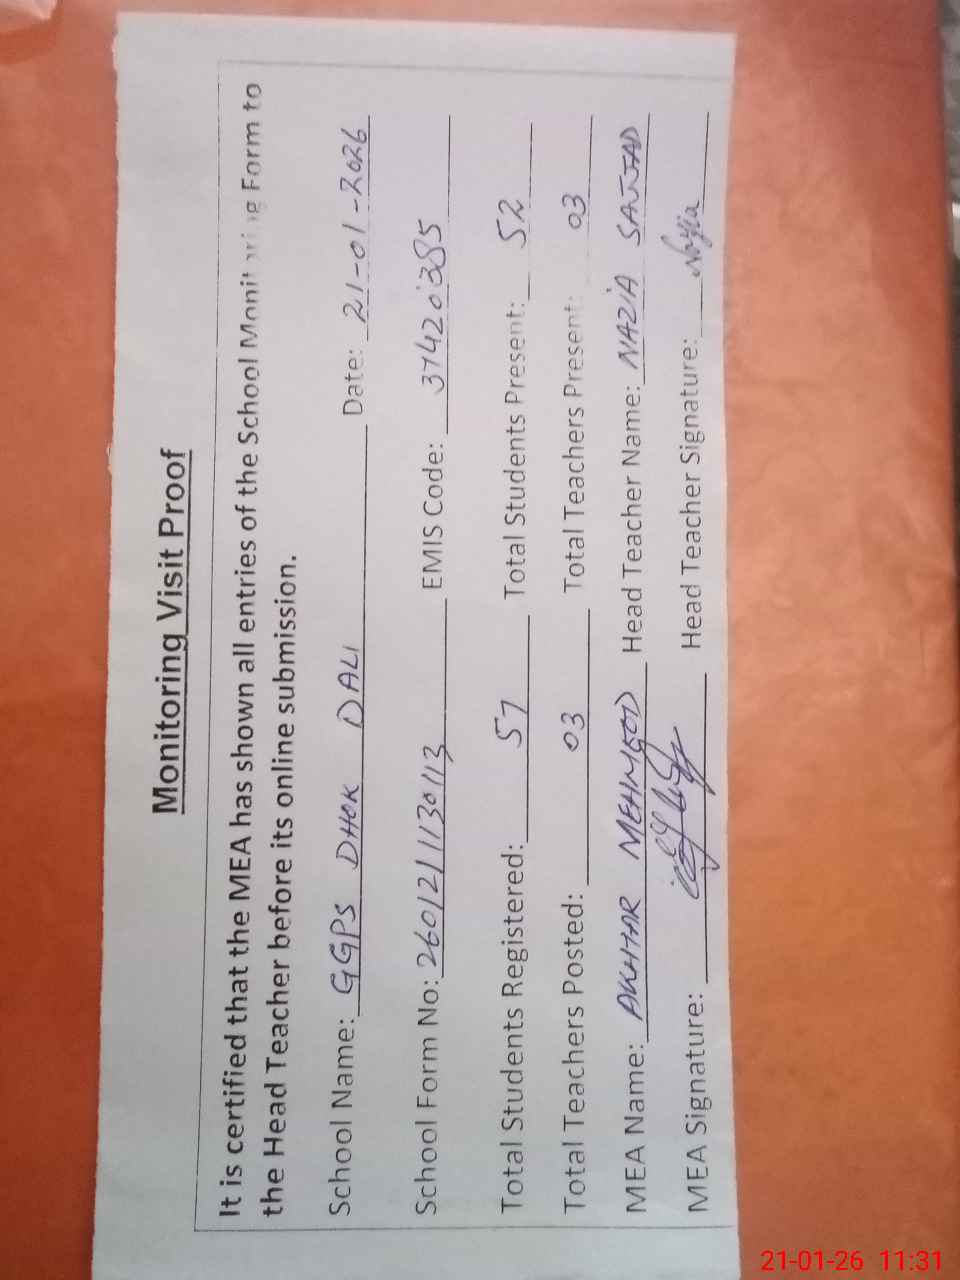 Monitoring Visit Proof
It is certified that the MEA has shown all entries of the School Monitoring Form to
the Head Teacher before its online submission.
School Name: GGPS DHOK DALI Date: 21-01-2026
School Form No: 2601211130113 EMIS Code: 37420385
Total Students Registered: 57 Total Students Present: 52
Total Teachers Posted: 03 Total Teachers Present: 03
MEA Name: AKHTAR MEHMOOD Head Teacher Name: NAZIA SAJJAD
MEA Signature: Head Teacher Signature: Nazia
21-01-26 11:31